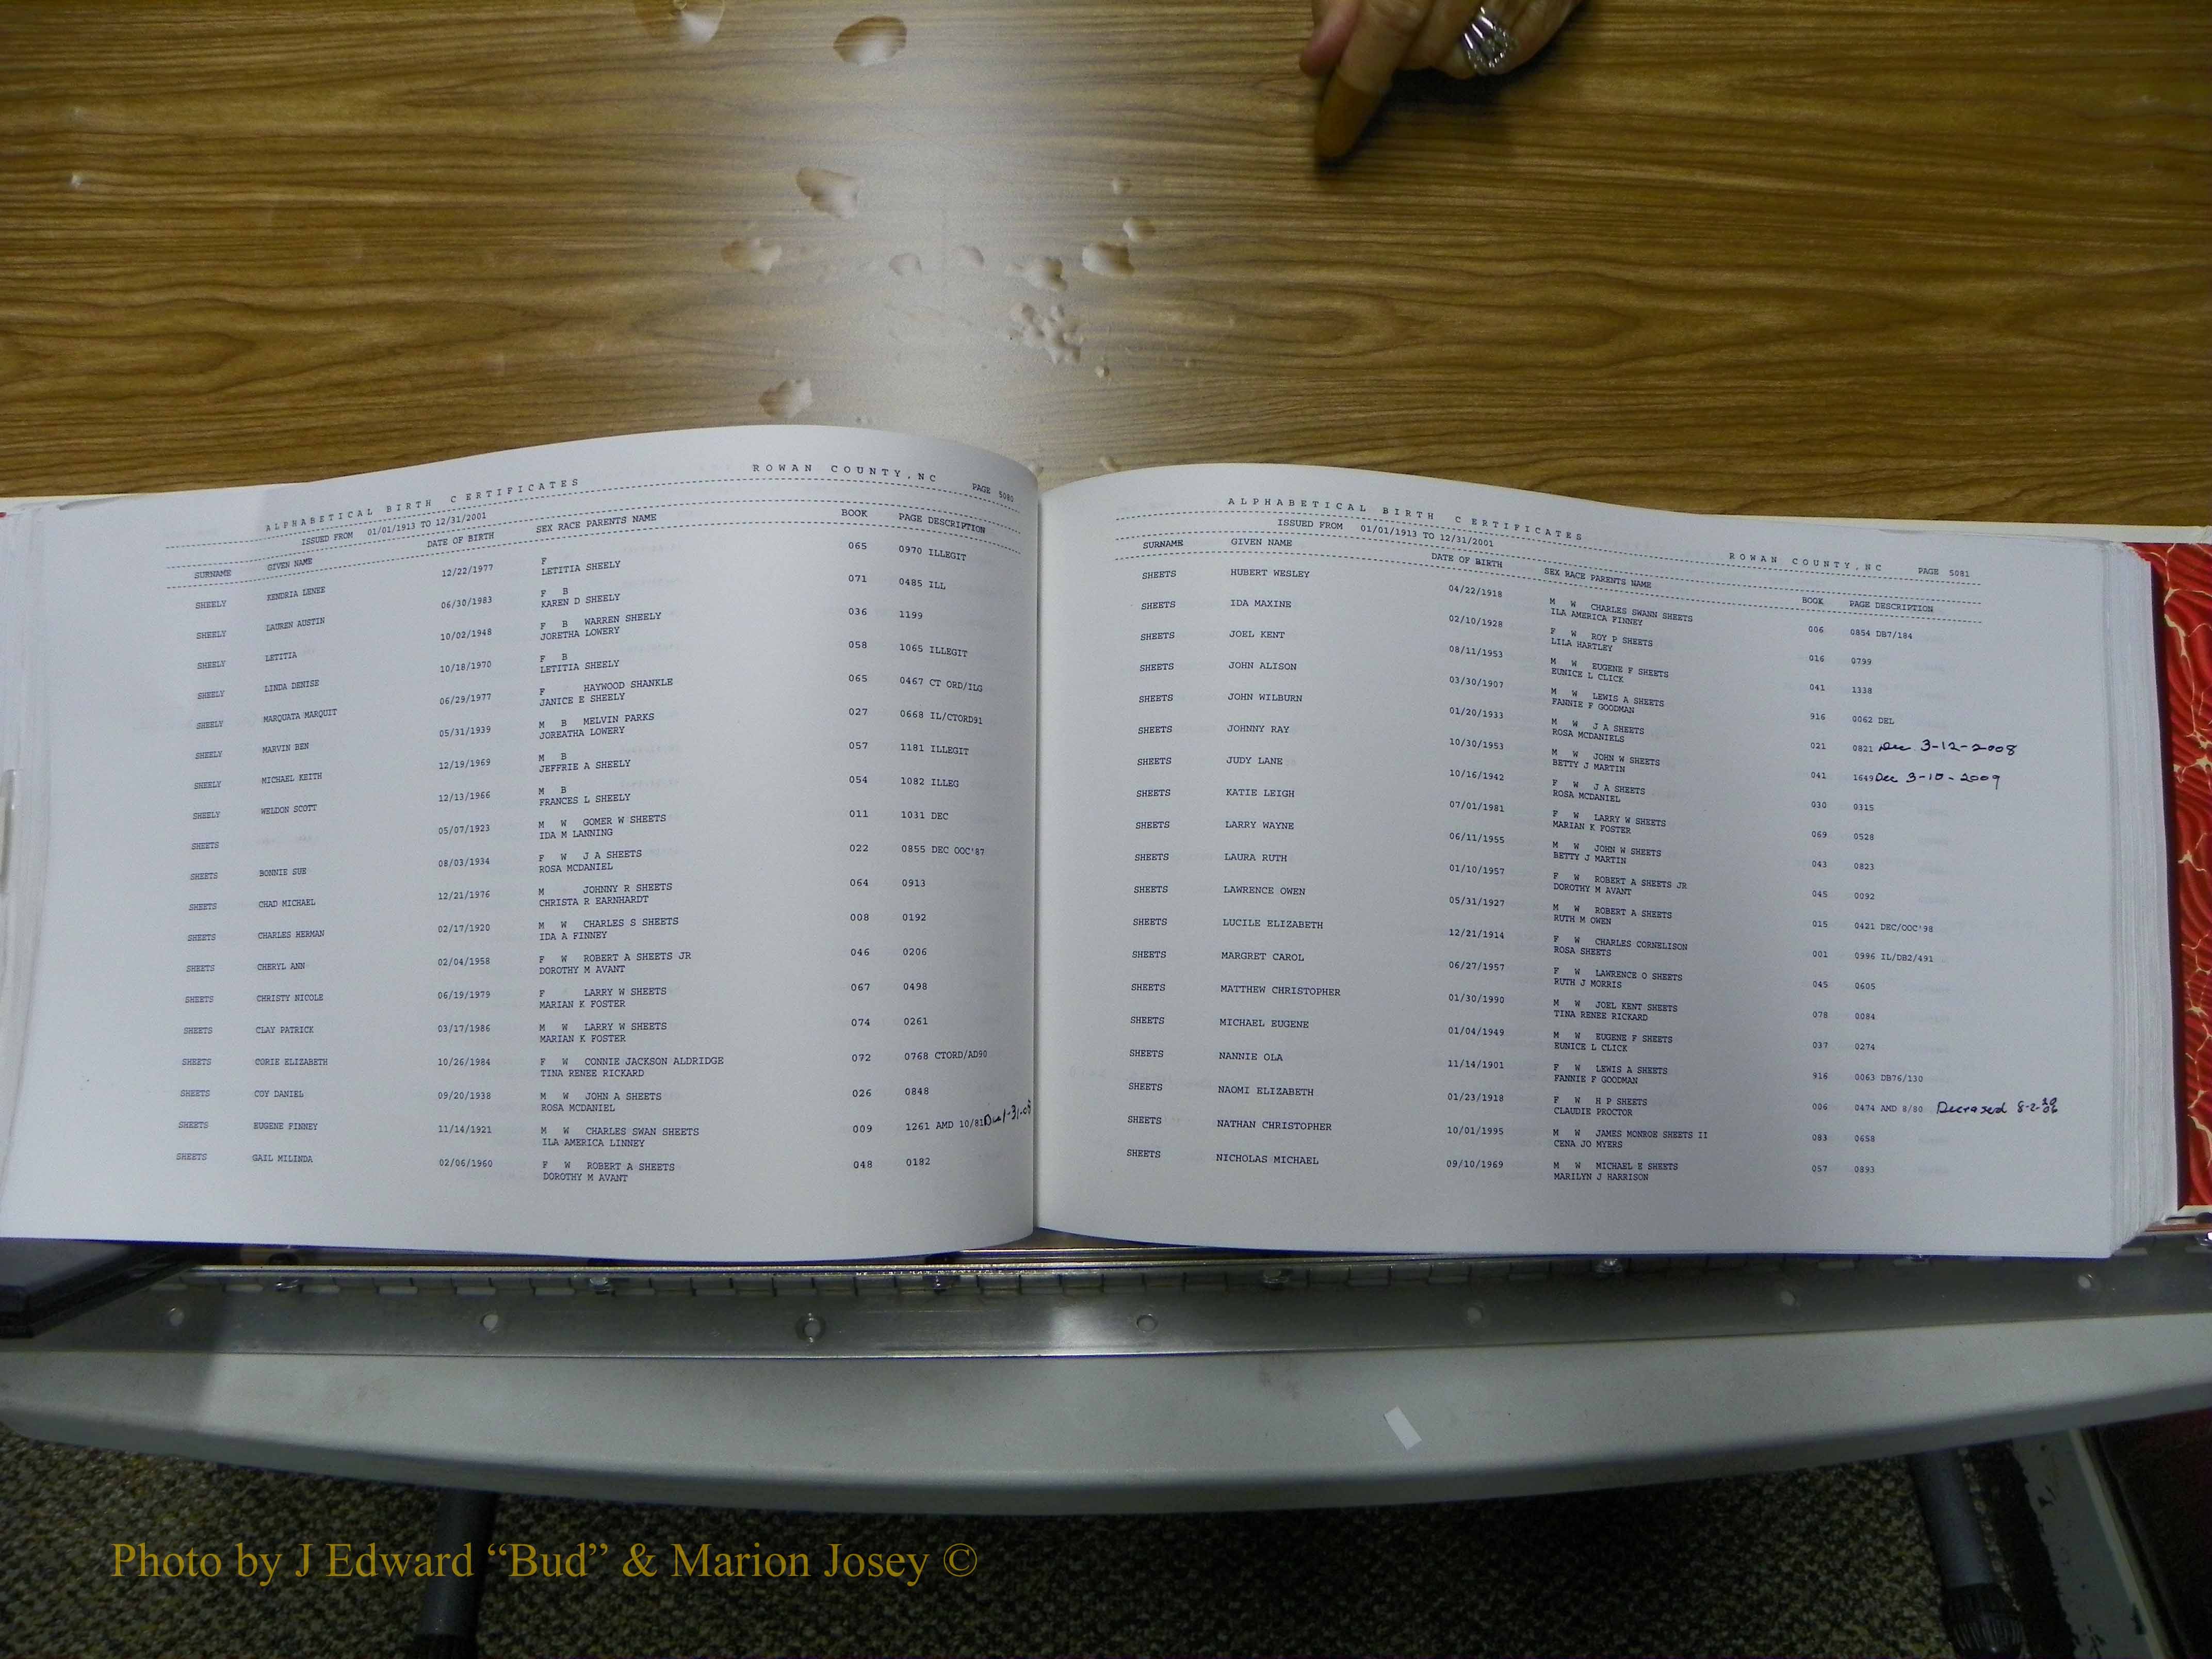 ALPHABETICAL BIRTH CERTIFICATES ROWAN COUNTY,NC PAGE 5080
ISSUED FROM 01/01/1913 TO 12/31/2001
SURNAME GIVEN NAME DATE OF BIRTH SEX RACE PARENTS NAME BOOK PAGE DESCRIPTION
SHEELY KENDRIA LENEE 12/22/1977 F 065 0970 ILLEGIT
LETITIA SHEELY
SHEELY LAUREN AUSTIN 06/30/1983 F B 071 0485 ILL
KAREN D SHEELY
SHEELY LETITIA 10/02/1948 F B WARREN SHEELY 036 1199
JORETHA LOWERY
SHEELY LINDA DENISE 10/18/1970 F B 058 1065 ILLEGIT
LETITIA SHEELY
SHEELY MARQUATA MARQUIT 06/29/1977 F HAYWOOD SHANKLE 065 0467 CT ORD/ILG
JANICE E SHEELY
SHEELY MARVIN BEN 05/31/1939 M B MELVIN PARKS 027 0668 IL/CTORD91
JOREATHA LOWERY
SHEELY MICHAEL KEITH 12/19/1969 M B 057 1181 ILLEGIT
JEFFRIE A SHEELY
SHEELY WELDON SCOTT 12/13/1966 M B 054 1082 ILLEG
FRANCES L SHEELY
SHEETS 05/07/1923 M W GOMER W SHEETS 011 1031 DEC
IDA M LANNING
SHEETS BONNIE SUE 08/03/1934 F W J A SHEETS 022 0855 DEC OOC'87
ROSA MCDANIEL
SHEETS CHAD MICHAEL 12/21/1976 M JOHNNY R SHEETS 064 0913
CHRISTA R EARNHARDT
SHEETS CHARLES HERMAN 02/17/1920 M W CHARLES S SHEETS 008 0192
IDA A FINNEY
SHEETS CHERYL ANN 02/04/1958 F W ROBERT A SHEETS JR 046 0206
DOROTHY M AVANT
SHEETS CHRISTY NICOLE 06/19/1979 F LARRY W SHEETS 067 0498
MARIAN K FOSTER
SHEETS CLAY PATRICK 03/17/1986 M W LARRY W SHEETS 074 0261
MARIAN K FOSTER
SHEETS CORIE ELIZABETH 10/26/1984 F W CONNIE JACKSON ALDRIDGE 072 0768 CTORD/AD90
TINA RENEE RICKARD
SHEETS COY DANIEL 09/20/1938 M W JOHN A SHEETS 026 0848
ROSA MCDANIEL
SHEETS EUGENE FINNEY 11/14/1921 M W CHARLES SWAN SHEETS 009 1261 AMD 10/81
ILA AMERICA LINNEY
SHEETS GAIL MILINDA 02/06/1960 F W ROBERT A SHEETS 048 0182
DOROTHY M AVANT
ALPHABETICAL BIRTH CERTIFICATES ROWAN COUNTY,NC PAGE 5081
ISSUED FROM 01/01/1913 TO 12/31/2001
SURNAME GIVEN NAME DATE OF BIRTH SEX RACE PARENTS NAME BOOK PAGE DESCRIPTION
SHEETS HUBERT WESLEY 04/22/1918 M W CHARLES SWANN SHEETS 006 0854 DB7/184
ILA AMERICA FINNEY
SHEETS IDA MAXINE 02/10/1928 F W ROY P SHEETS 016 0799
LILA HARTLEY
SHEETS JOEL KENT 08/11/1953 M W EUGENE F SHEETS 041 1338
EUNICE L CLICK
SHEETS JOHN ALISON 03/30/1907 M W LEWIS A SHEETS 916 0062 DEL
FANNIE F GOODMAN
SHEETS JOHN WILBURN 01/20/1933 M W J A SHEETS 021 0821 Dec 3-12-2008
ROSA MCDANIELS
SHEETS JOHNNY RAY 10/30/1953 M W JOHN W SHEETS 041 1649 Dec 3-10-2009
BETTY J MARTIN
SHEETS JUDY LANE 10/16/1942 F W J A SHEETS 030 0315
ROSA MCDANIEL
SHEETS KATIE LEIGH 07/01/1981 F W LARRY W SHEETS 069 0528
MARIAN K FOSTER
SHEETS LARRY WAYNE 06/11/1955 M W JOHN W SHEETS 043 0823
BETTY J MARTIN
SHEETS LAURA RUTH 01/10/1957 F W ROBERT A SHEETS JR 045 0092
DOROTHY M AVANT
SHEETS LAWRENCE OWEN 05/31/1927 M W ROBERT A SHEETS 015 0421 DEC/OOC'98
RUTH M OWEN
SHEETS LUCILE ELIZABETH 12/21/1914 F W CHARLES CORNELISON 001 0996 IL/DB2/491
ROSA SHEETS
SHEETS MARGRET CAROL 06/27/1957 F W LAWRENCE O SHEETS 045 0605
RUTH J MORRIS
SHEETS MATTHEW CHRISTOPHER 01/30/1990 M W JOEL KENT SHEETS 078 0084
TINA RENEE RICKARD
SHEETS MICHAEL EUGENE 01/04/1949 M W EUGENE F SHEETS 037 0274
EUNICE L CLICK
SHEETS NANNIE OLA 11/14/1901 F W LEWIS A SHEETS 916 0063 DB76/130
FANNIE F GOODMAN
SHEETS NAOMI ELIZABETH 01/23/1918 F W H P SHEETS 006 0474 AMD 8/80 Deceased 8-2-
CLAUDIE PROCTOR
SHEETS NATHAN CHRISTOPHER 10/01/1995 M W JAMES MONROE SHEETS II 083 0658
CENA JO MYERS
SHEETS NICHOLAS MICHAEL 09/10/1969 M W MICHAEL E SHEETS 057 0893
MARILYN J HARRISON
Photo by J Edward “Bud” & Marion Josey ©